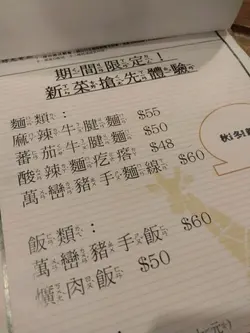 期間限定！
新菜搶先體驗
麵類：
麻辣牛腱麵 $55
番茄牛腱麵 $50
酸辣麵疙瘩 $48
萬巒豬手麵線 $60
飯類：
萬巒豬手飯 $60
爌肉飯 $50